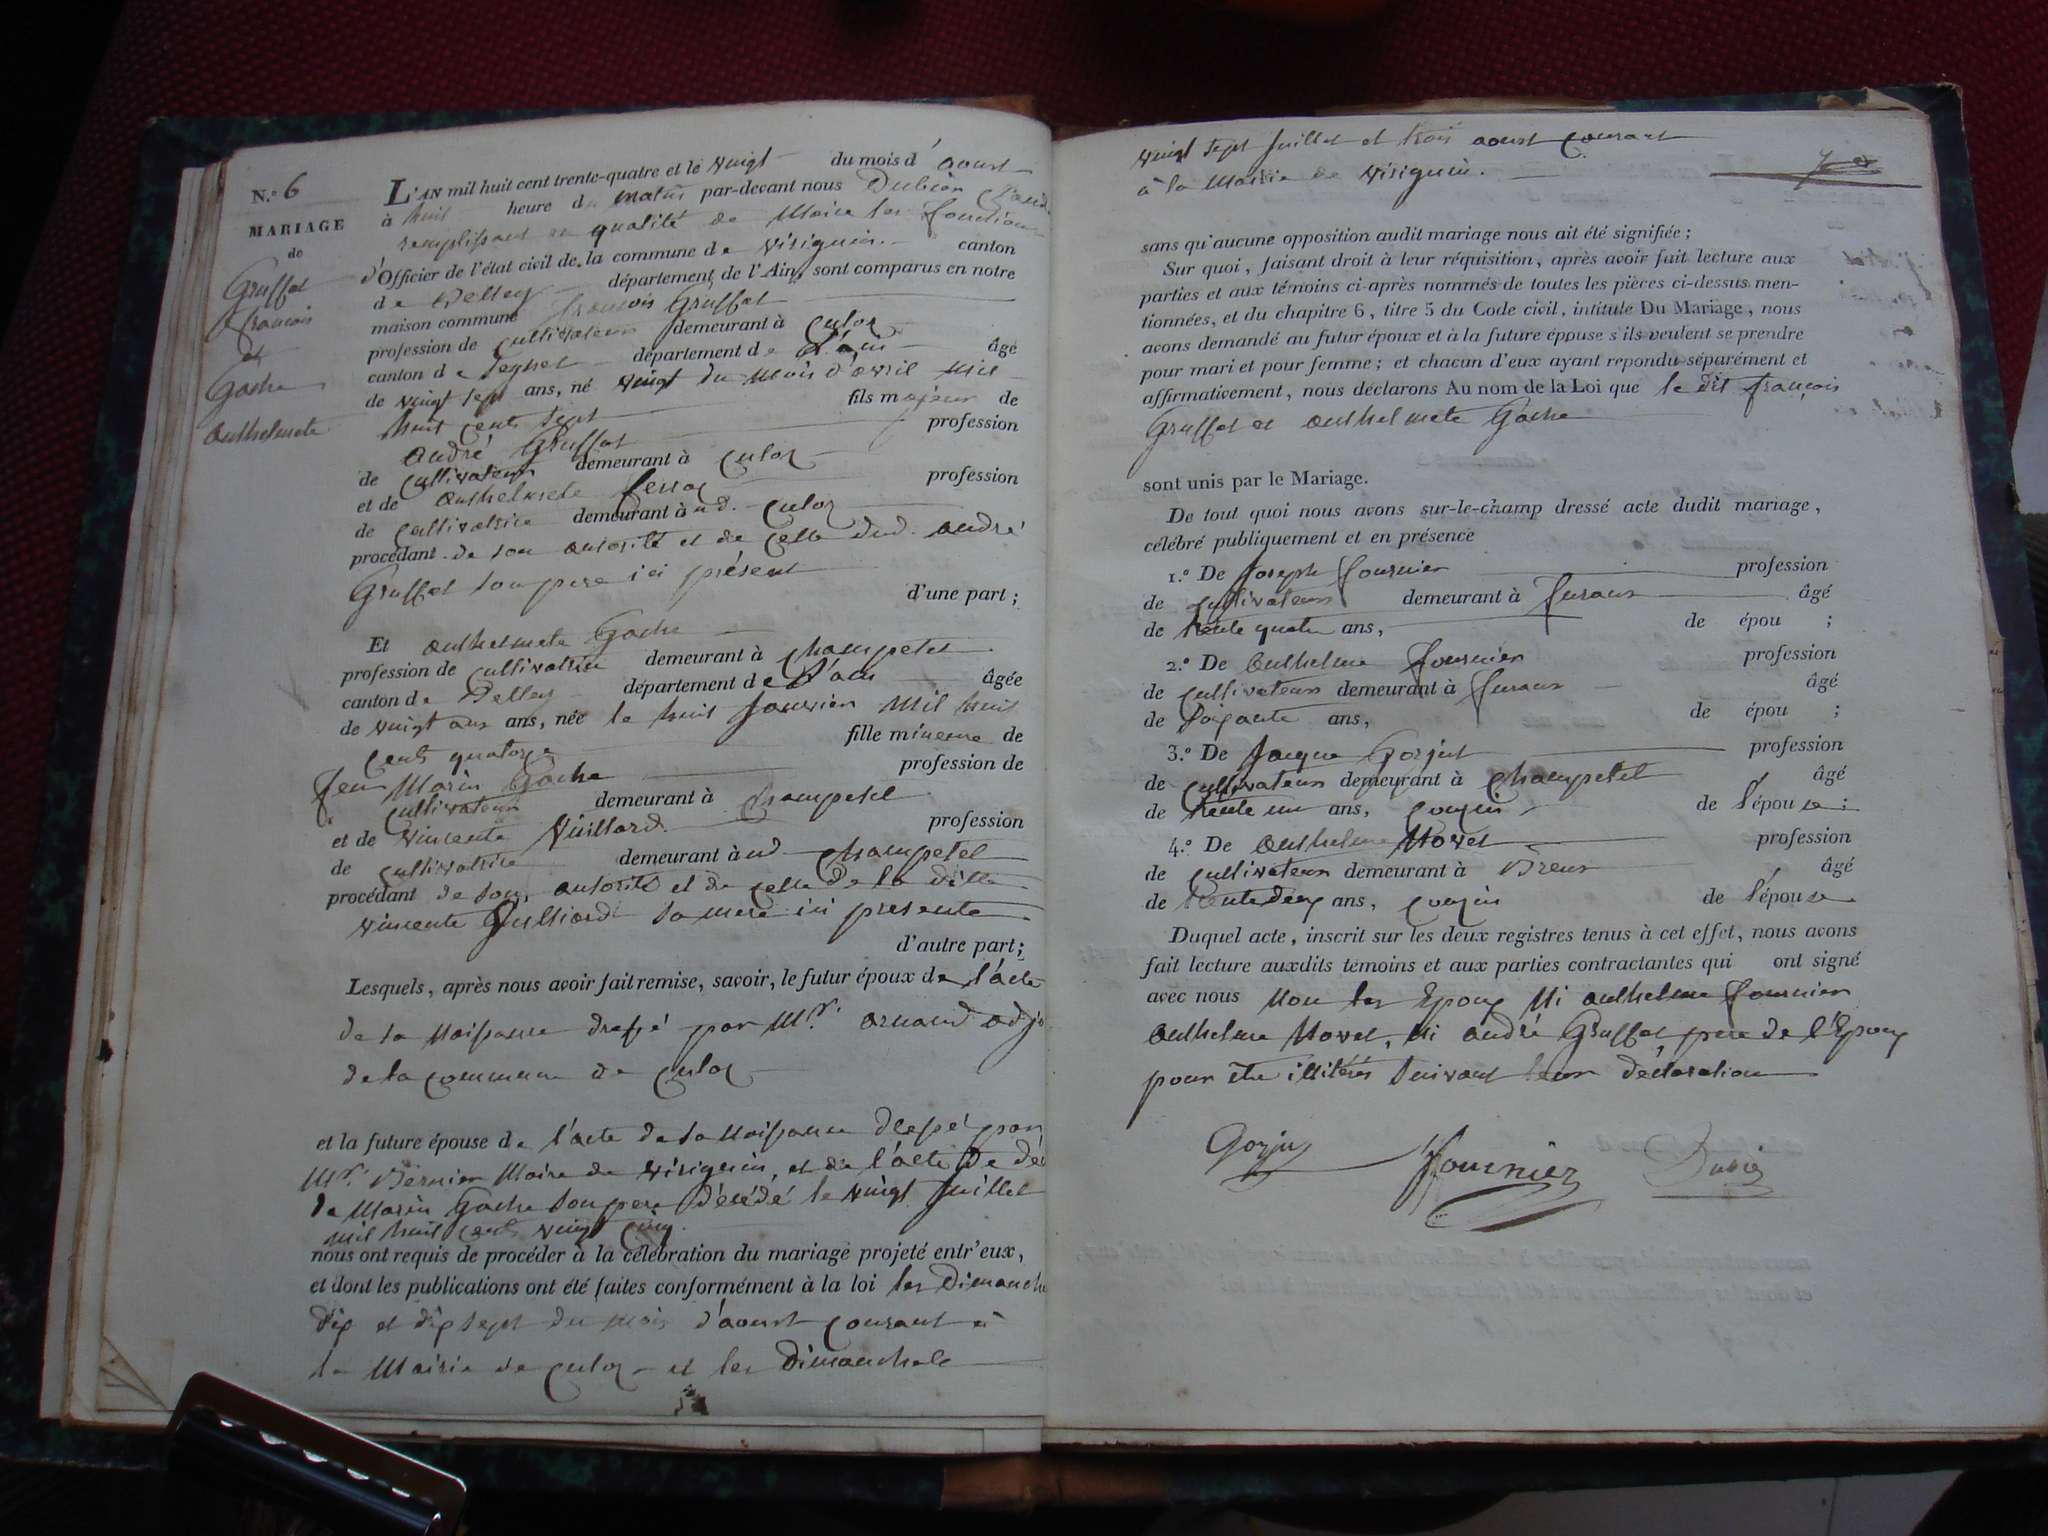 N.º 6
MARIAGE
de
Gruffet
francois
et
Gache
anthelmete
L'AN mil huit cent trente-quatre et le vingt du mois d'aoust
à huit heure du matin par-devant nous Dubien
remplissant en qualité de Maire les fonctions
d'Officier de l'état civil de la commune de virignin canton
de Belley département de l'Ain, sont comparus en notre
maison commune francois Gruffet
profession de cultivateur demeurant à culoz
canton de Seyssel département de l'ain âgé
de vingt sept ans, né vingt du mois d'avril mil
huit cent sept fils majeur de
andré Gruffet profession
de cultivateur demeurant à culoz
et de anthelmete profession
de cultivatrice demeurant aud. culoz
procédant de son autorité et de celle dud. andré
Gruffet son pere ici présent
d'une part ;
Et anthelmete Gache
profession de cultivatrice demeurant à champetel
canton de Belley département de l'ain âgée
de vingt ans, née le huit janvier mil huit
cent quatorze fille mineure de
feu Marin Gache profession de
cultivateur demeurant à champetel
et de vincente Vuillard profession
de cultivatrice demeurant aud champetel
procédant de son autorité et de celle de la ditte
vincente Vulliard sa mere ici presente
d'autre part ;
Lesquels, après nous avoir fait remise, savoir, le futur époux de l'acte
de sa naissance dressé par Mr. arnaud adj
de la commune de culoz
et la future épouse de l'acte de sa naissance dressé par
Mr. Bernier Maire de virignin, et de l'acte de dé
de Marin Gache son pere décédé le vingt juillet
mil huit cent vingt cinq.
nous ont requis de procéder à la célébration du mariage projeté entr'eux,
et dont les publications ont été faites conformément à la loi les dimanche
dix et dix sept du mois d'aoust courant à
la Mairie de culoz et les dimanche
vingt sept juillet et trois aoust courant
à la Mairie de virignin.
sans qu'aucune opposition audit mariage nous ait été signifiée ;
Sur quoi, faisant droit à leur réquisition, après avoir fait lecture aux
parties et aux témoins ci-après nommés de toutes les pièces ci-dessus men-
tionnées, et du chapitre 6, titre 5 du Code civil, intitulé Du Mariage, nous
avons demandé au futur époux et à la future épouse s'ils veulent se prendre
pour mari et pour femme ; et chacun d'eux ayant repondu séparément et
affirmativement, nous déclarons Au nom de la Loi que le dit françois
Gruffet et anthelmete Gache
sont unis par le Mariage.
De tout quoi nous avons sur-le-champ dressé acte dudit mariage,
célébré publiquement et en présence
1.º De Joseph fournier profession
de cultivateur demeurant à furaux âgé
de trente quatre ans, de épou ;
2.º De anthelme fournier profession
de cultivateur demeurant à furaux âgé
de soixante ans, de épou ;
3.º De Jacque Gorjut profession
de cultivateur demeurant à champetel âgé
de trente un ans, cousin de l'épouse ;
4.º De anthelme Hovet profession
de cultivateur demeurant à Brens âgé
de trente deux ans, cousin de l'épouse
Duquel acte, inscrit sur les deux registres tenus à cet effet, nous avons
fait lecture auxdits témoins et aux parties contractantes qui ont signé
avec nous non les Epoux Ni anthelme fournier
anthelme Hovet, Ni andré Gruffet pere de l'Epoux
pour etre illitérés suivant leur déclaration
Gorju fournier Dubien